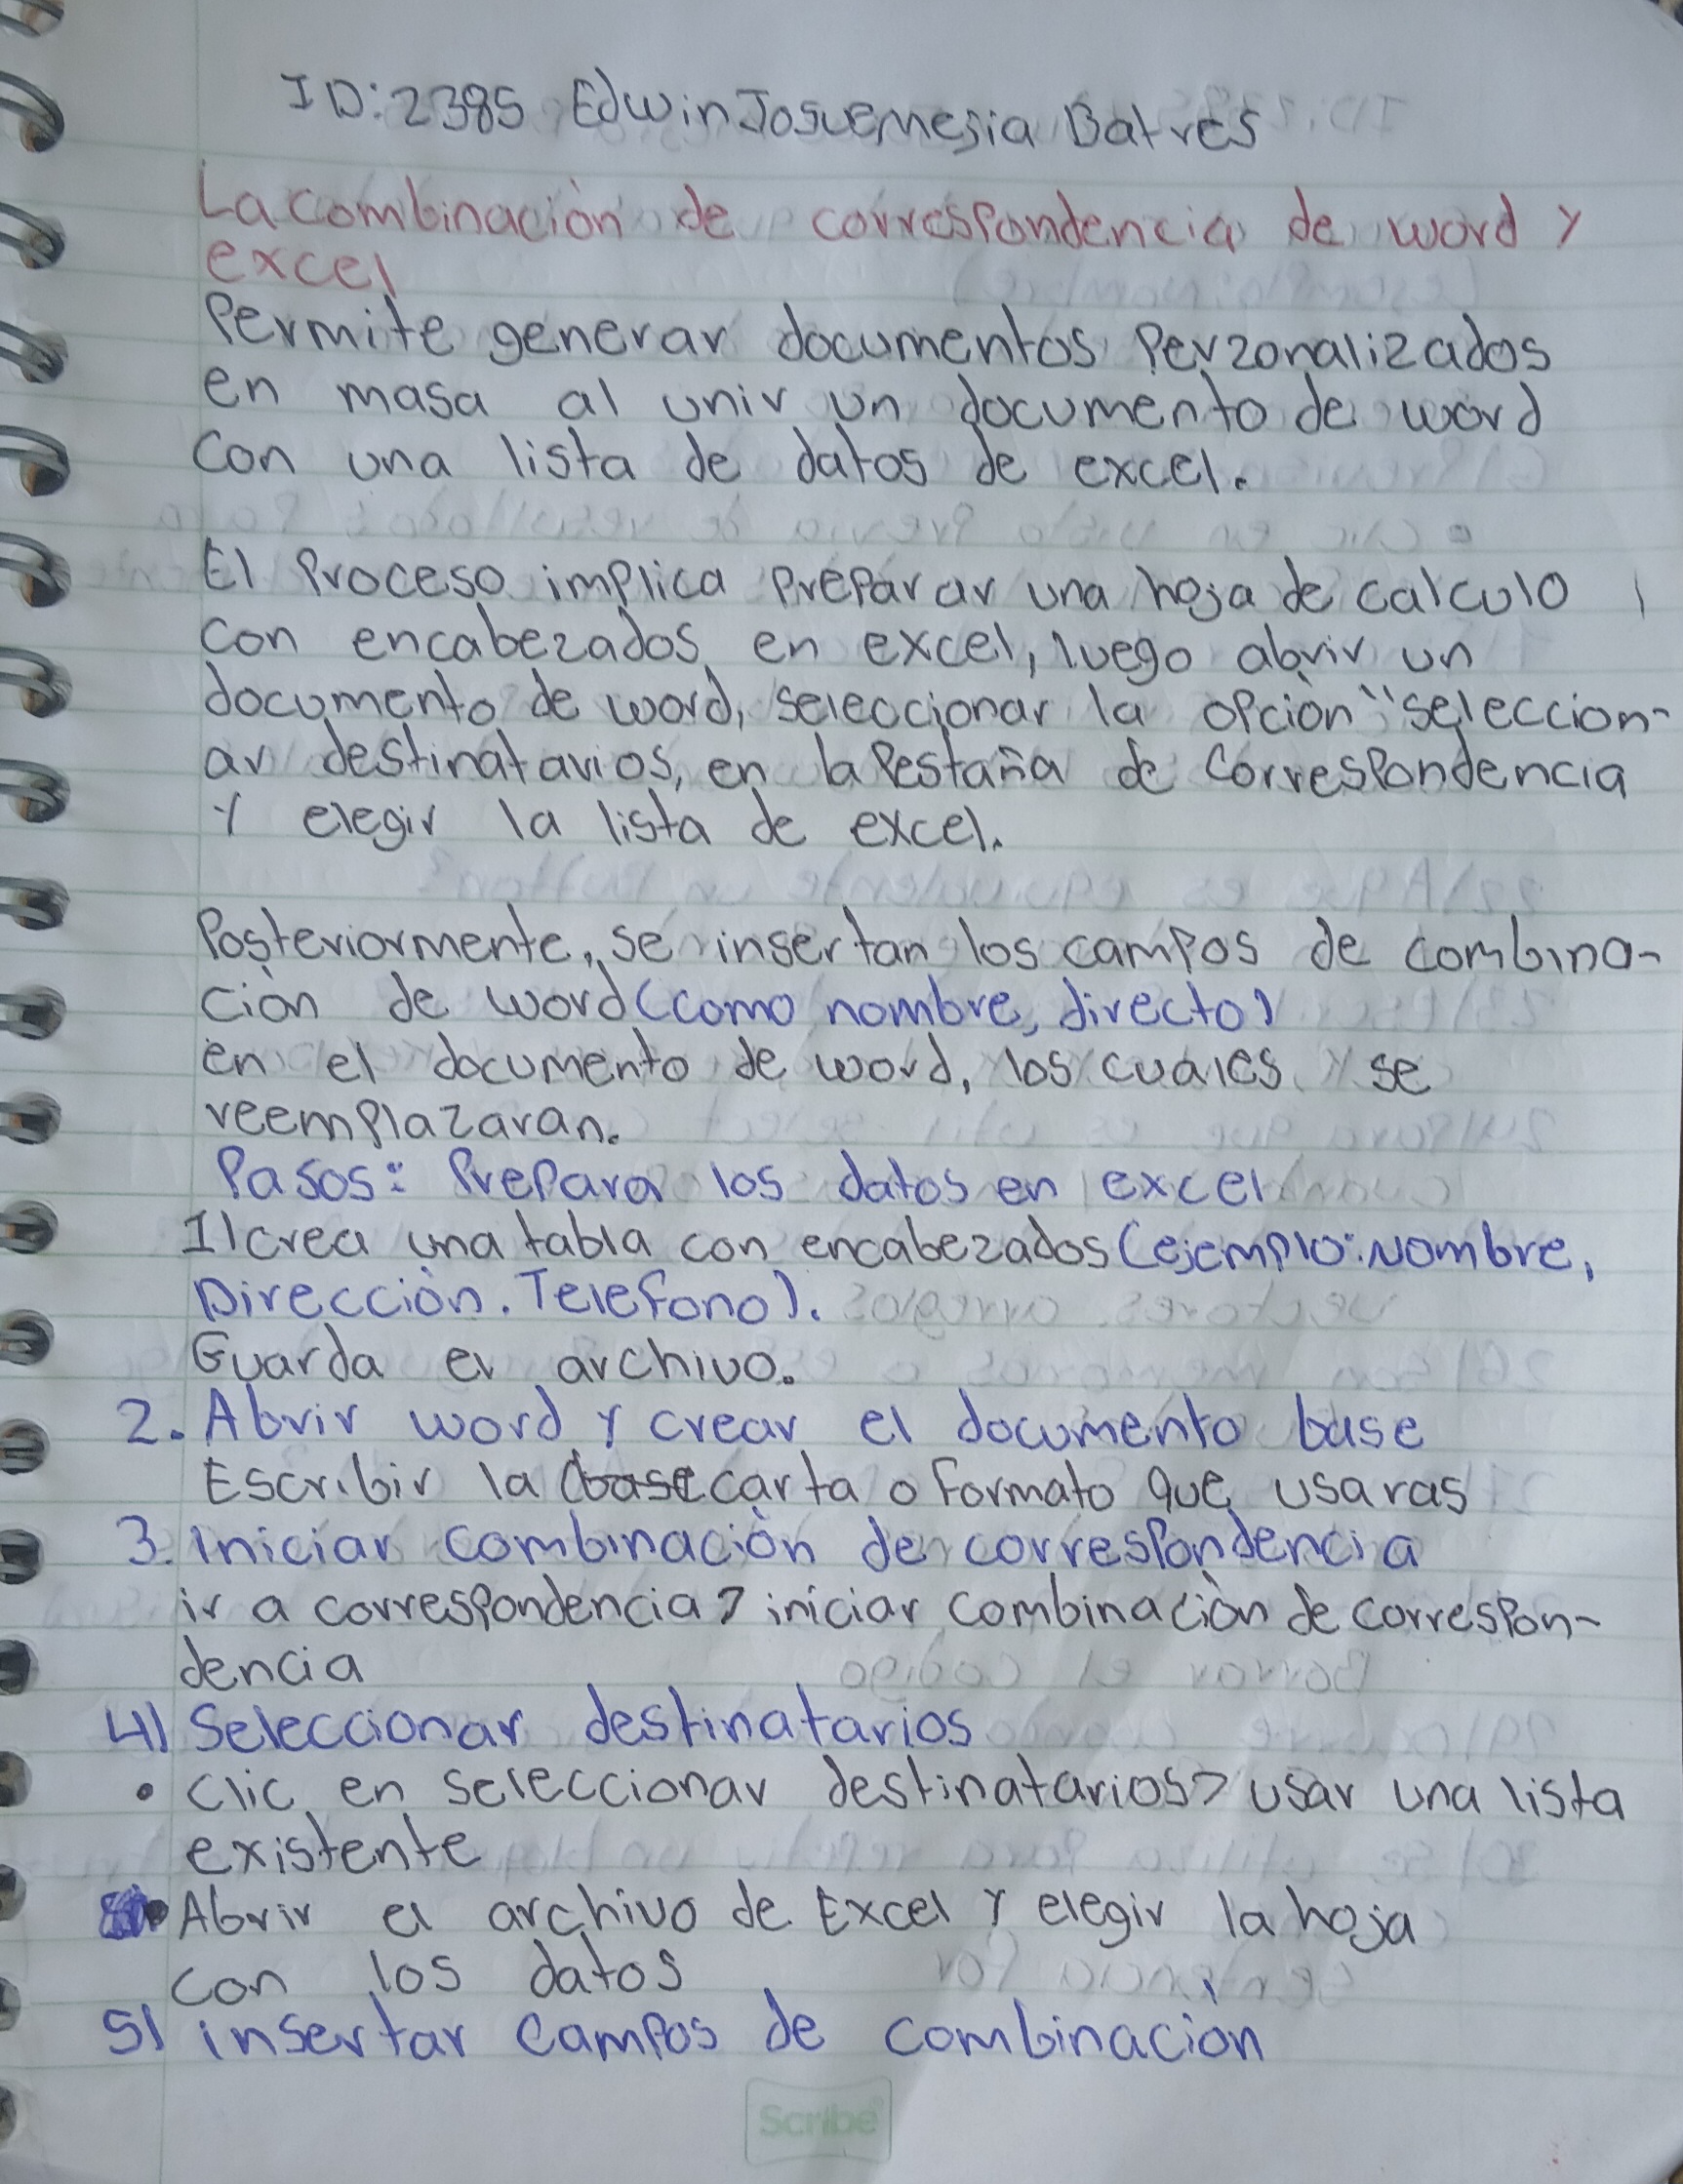 ID: 2385 Edwin Josue mesia Batres
La combinación de correspondencia de word y
excel
Permite generar documentos Perzonalizados
en masa al unir un documento de word
con una lista de datos de excel.
El Proceso implica Preparar una hoja de calculo
con encabezados en excel, luego abrir un
documento de word, seleccionar la opción "seleccion-
ar destinatarios, en la Pestaña de Correspondencia
y elegir la lista de excel.
Posteriormente, se insertan los campos de combina-
ción de word (como nombre, directo)
en el documento de word, los cuales se
reemplazaran.
Pasos: Prepara los datos en excel
1) crea una tabla con encabezados (ejemplo: Nombre,
Dirección. Telefono).
Guarda el archivo.
2. Abrir word y crear el documento base
Escribir la carta o formato que usaras
3. iniciar combinación de correspondencia
ir a correspondencia > iniciar combinación de correspon-
dencia
4) Seleccionar destinatarios
• Clic en seleccionar destinatarios > usar una lista
existente
• Abrir el archivo de Excel y elegir la hoja
con los datos
5) insertar campos de combinación
Scribe